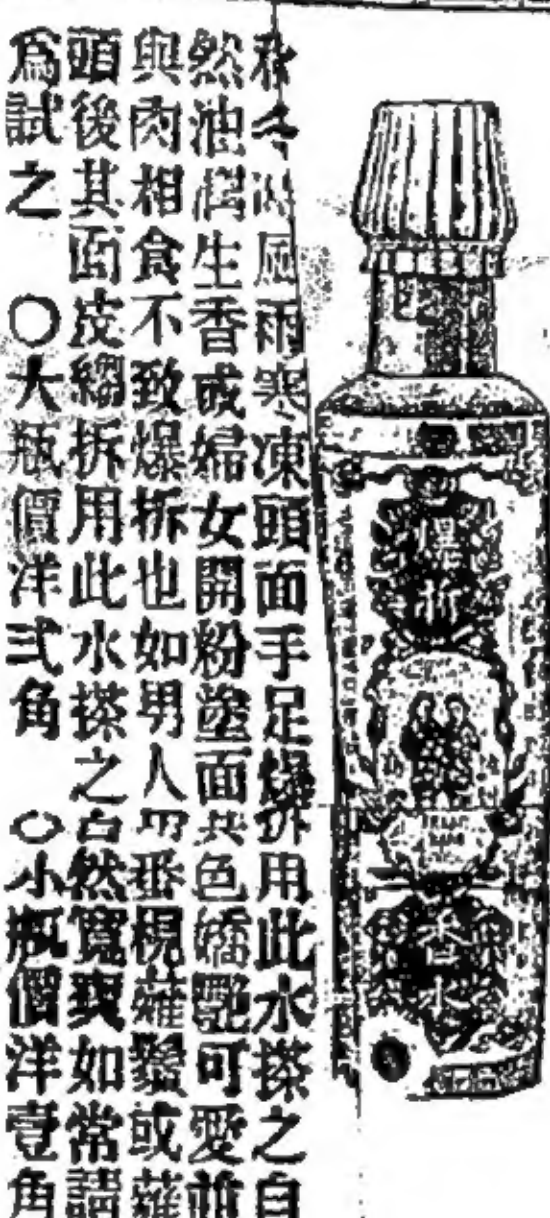 爆拆
香水
秋冬風雨寒凍頭面手足爆拆用此水搽之自
然油潤生香或婦女開粉塗面其色嬌艷可愛並
與肉相食不致爆拆也如男人用番梘薙鬚或薙
頭後其面皮縐拆用此水搽之自然寬爽如常請
為試之　○大瓶價洋弍角　○小瓶價洋壹角